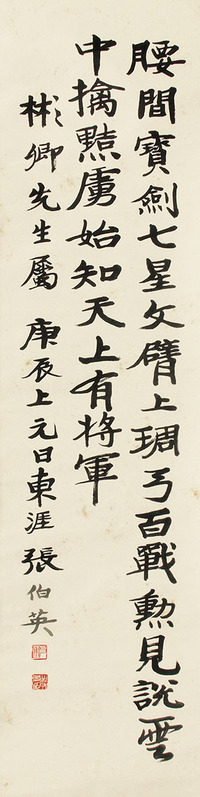 腰間寶劍七星文臂上琱弓百戰勳見說雲
中擒黠虜始知天上有將軍
彬卿先生屬 庚辰上元日東涯張伯英